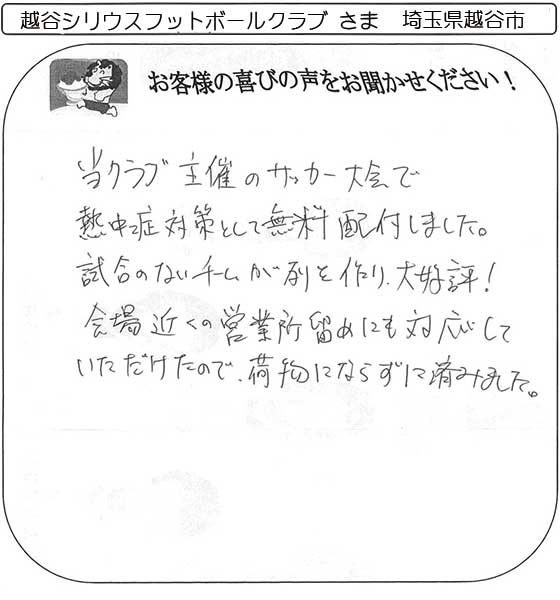 越谷シリウスフットボールクラブ さま 埼玉県越谷市
お客様の喜びの声をお聞かせください！
当クラブ主催のサッカー大会で
熱中症対策として無料配付しました。
試合のないチームが列を作り、大好評！
会場近くの営業所留めにも対応して
いただけたので、荷物にならずに済みました。